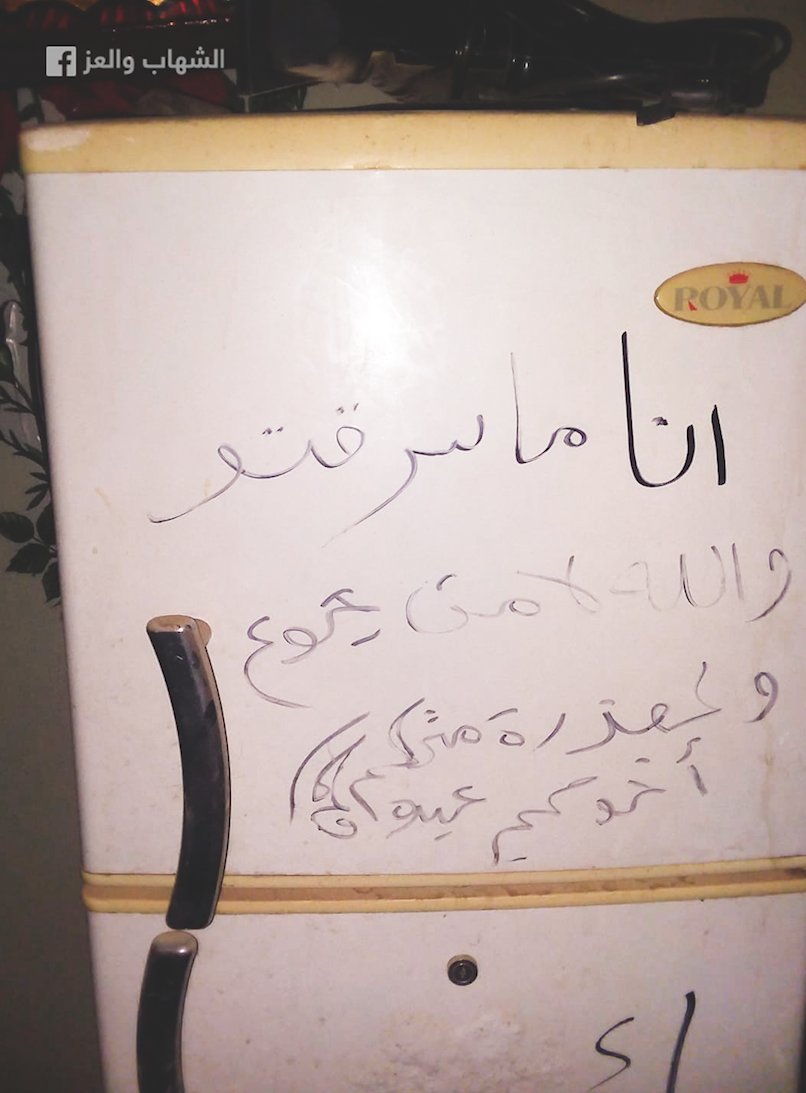 الشهاب والعز
ROYAL
انا ما سرقتو
والله لا من جوع
و لمعذرة منكم
أخوكم عبدو